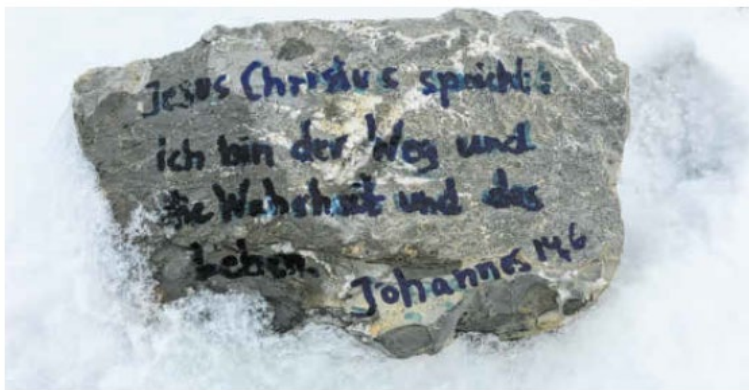 Jesus Christus spricht:
ich bin der Weg und
die Wahrheit und das
Leben.
Johannes 14,6